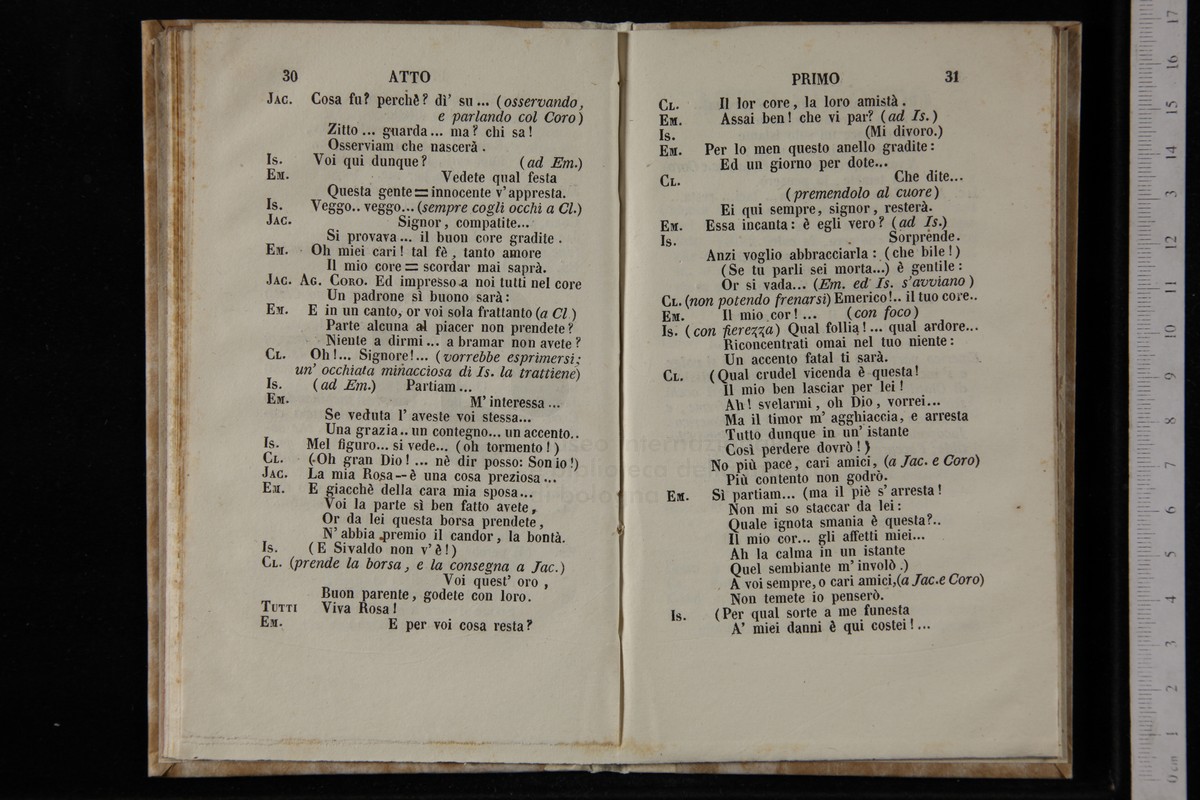 30 ATTO
Jac. Cosa fu? perchè? dì' su... (osservando,
e parlando col Coro)
Zitto... guarda... ma? chi sa!
Osserviam che nascerà.
Is. Voi qui dunque? (ad Em.)
Em. Vedete qual festa
Questa gente = innocente v'appresta.
Is. Veggo.. veggo... (sempre cogli occhi a Cl.)
Jac. Signor, compatite...
Si provava... il buon core gradite.
Em. Oh miei cari! tal fè, tanto amore
Il mio core = scordar mai saprà.
Jac. Ag. Coro. Ed impresso a noi tutti nel core
Un padrone sì buono sarà:
Em. E in un canto, or voi sola frattanto (a Cl.)
Parte alcuna al piacer non prendete?
Niente a dirmi... a bramar non avete?
Cl. Oh!... Signore!... (vorrebbe esprimersi;
un' occhiata minacciosa di Is. la trattiene)
Is. (ad Em.) Partiam...
Em. M'interessa...
Se veduta l' aveste voi stessa...
Una grazia.. un contegno... un accento..
Is. Mel figuro... si vede... (oh tormento!)
Cl. (Oh gran Dio! ... nè dir posso: Son io!)
Jac. La mia Rosa — è una cosa preziosa...
Em. E giacchè della cara mia sposa...
Voi la parte sì ben fatto avete,
Or da lei questa borsa prendete,
N' abbia premio il candor, la bontà.
Is. (E Sivaldo non v'è!)
Cl. (prende la borsa, e la consegna a Jac.)
Voi quest' oro,
Buon parente, godete con loro.
Tutti Viva Rosa!
Em. E per voi cosa resta?
PRIMO 31
Cl. Il lor core, la loro amistà.
Em. Assai ben! che vi par? (ad Is.)
Is. (Mi divoro.)
Em. Per lo men questo anello gradite:
Ed un giorno per dote...
Cl. Che dite...
(premendolo al cuore)
Ei qui sempre, signor, resterà.
Em. Essa incanta: è egli vero? (ad Is.)
Is. Sorprende.
Anzi voglio abbracciarla: (che bile!)
(Se tu parli sei morta...) è gentile:
Or si vada... (Em. ed Is. s'avviano)
Cl. (non potendo frenarsi) Emerico!.. il tuo core..
Em. Il mio cor! ... (con foco)
Is. (con fierezza) Qual follia!... qual ardore...
Riconcentrati omai nel tuo niente:
Un accento fatal ti sarà.
Cl. (Qual crudel vicenda è questa!
Il mio ben lasciar per lei!
Ah! svelarmi, oh Dio, vorrei...
Ma il timor m' agghiaccia, e arresta
Tutto dunque in un' istante
Così perdere dovrò!)
No più pace, cari amici, (a Jac. e Coro)
Più contento non godrò.
Em. Sì partiam... (ma il piè s' arresta!
Non mi so staccar da lei:
Quale ignota smania è questa?..
Il mio cor... gli affetti miei...
Ah la calma in un istante
Quel sembiante m' involò.)
A voi sempre, o cari amici, (a Jac. e Coro)
Non temete io penserò.
Is. (Per qual sorte a me funesta
A' miei danni è qui costei!...